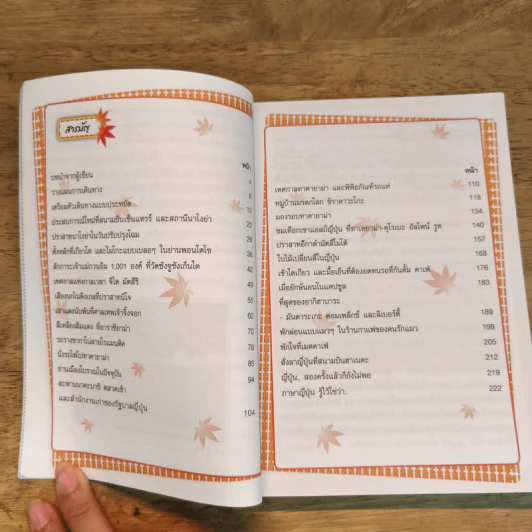 สารบัญ
หน้า
บทนำจากผู้เขียน
วางแผนการเดินทาง
เตรียมตัวเดินทางแบบประหยัด
ประสบการณ์ใหม่ที่สนามบินเซ็นแทร์ และสถานีนาโงย่า 23
ปราสาทนาโงย่าในวันปรับปรุงโฉม 29
ตั้งหลักที่เกียวโต และไมโกะแบบเบลอๆ ในย่านพอนโตโช 36
สักการะเจ้าแม่กวนอิม 1,001 องค์ ที่วัดซังจูซังเก็นโด 43
เทศกาลแห่งกาลเวลา จิได มัตสึริ 49
เสียงนกในดีงเกลที่ปราสาทนิโจ 55
เสาแดงนับพันที่ศาลเทพเจ้าจิ้งจอก 62
สีเหลืองส้มแดง ที่อาราชิยาม่า 70
รถรางซากาโน่สายโรแมนติค 78
นั่งรถไฟไปทาคายาม่า 85
ย่านเมืองโบราณในปัจจุบัน 94
สะพานนาคะบาชิ ตลาดเช้า
และสำนักงานเก่าของรัฐบาลญี่ปุ่น 104
หน้า
เทศกาลทาคายาม่า และพิพิธภัณฑ์รถแห่ 110
หมู่บ้านมรดกโลก ชิราคาวะโกะ 118
มองรอบทาคายาม่า 134
ชมเทือกเขาแอลป์ญี่ปุ่น ที่ทาเทยาม่า-คุโรเบะ อัลไพน์ รูท 140
ปราสาทอีกาดำมัตสึโมโต้ 157
ใบไม้เปลี่ยนสีในญี่ปุ่น 168
เช้าโตเกียว และมื้อเย็นที่ต้องอดทนรอที่กันดั้ม คาเฟ่ 176
เมื่อยักษ์นอนในแคปซูล 183
ที่สุดของอากิฮาบาระ
- มันดาระเกะ คอมเพล็กซ์ และลิเบอร์ตี้ 189
พักผ่อนแบบแมวๆ ในร้านกาแฟของคนรักแมว 199
พักใจที่เมดคาเฟ่ 205
ส่งลาญี่ปุ่นที่สนามบินฮาเนดะ 212
ญี่ปุ่น.. สองครั้งแล้วก็ยังไม่พอ 219
ภาษาญี่ปุ่น รู้ไว้ใช่ว่า.. 222